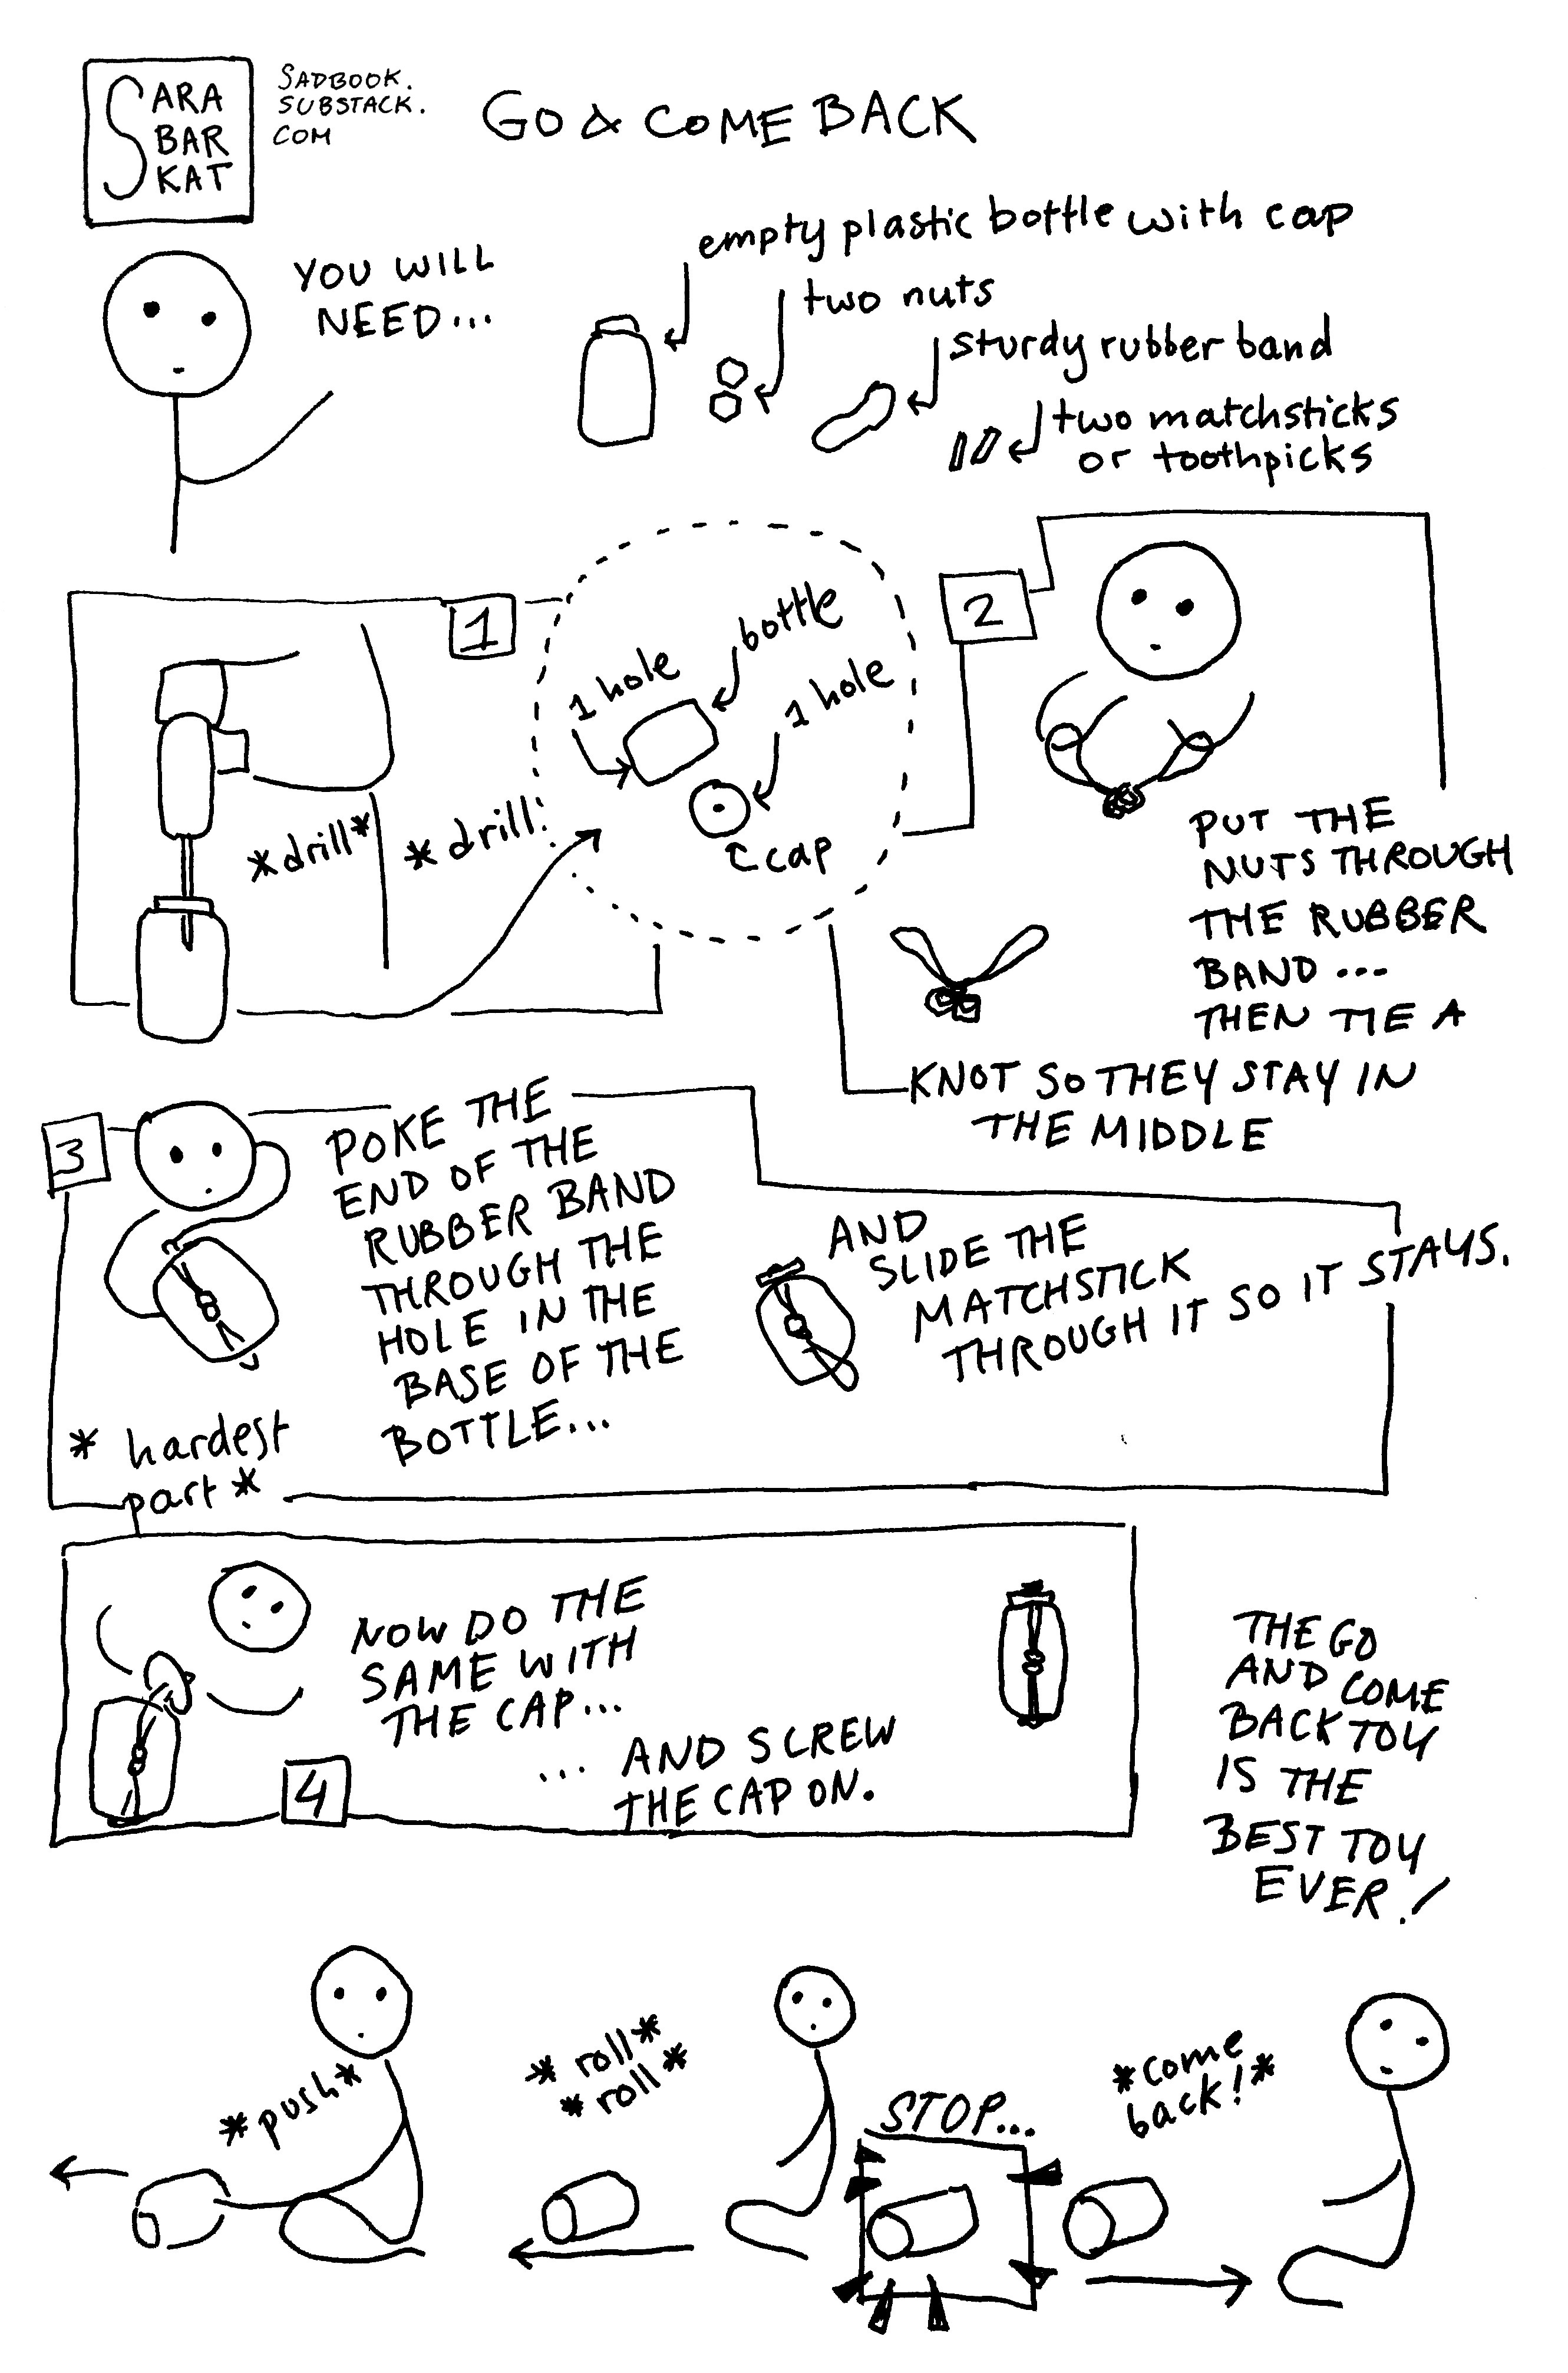 SARA
BAR
KAT
SADBOOK.
SUBSTACK.
COM
GO & COME BACK
YOU WILL
NEED...
empty plastic bottle with cap
two nuts
sturdy rubber band
two matchsticks
or toothpicks
1
*drill*
*drill*
1 hole
bottle
1 hole
cap
2
PUT THE
NUTS THROUGH
THE RUBBER
BAND...
THEN TIE A
KNOT SO THEY STAY IN
THE MIDDLE
3
POKE THE
END OF THE
RUBBER BAND
THROUGH THE
HOLE IN THE
BASE OF THE
BOTTLE...
* hardest
part *
AND
SLIDE THE
MATCHSTICK
THROUGH IT SO IT STAYS.
NOW DO THE
SAME WITH
THE CAP...
4
... AND SCREW
THE CAP ON.
THE GO
AND COME
BACK TOY
IS THE
BEST TOY
EVER!
*push*
*roll*
*roll*
STOP...
*come
back!*